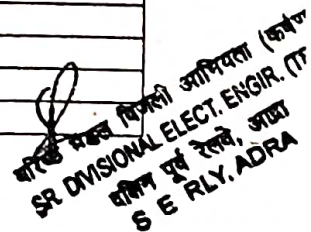 वरिष्ठ मंडल बिजली अभियंता (कर्षण
SR DIVISIONAL ELECT. ENGIR. (TR
दक्षिण पूर्व रेलवे, आद्रा
S E RLY, ADRA